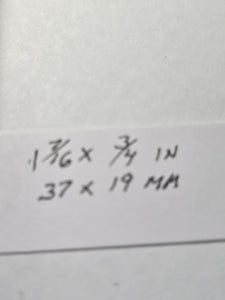 1 7/16 x 3/4 IN
37 x 19 MM